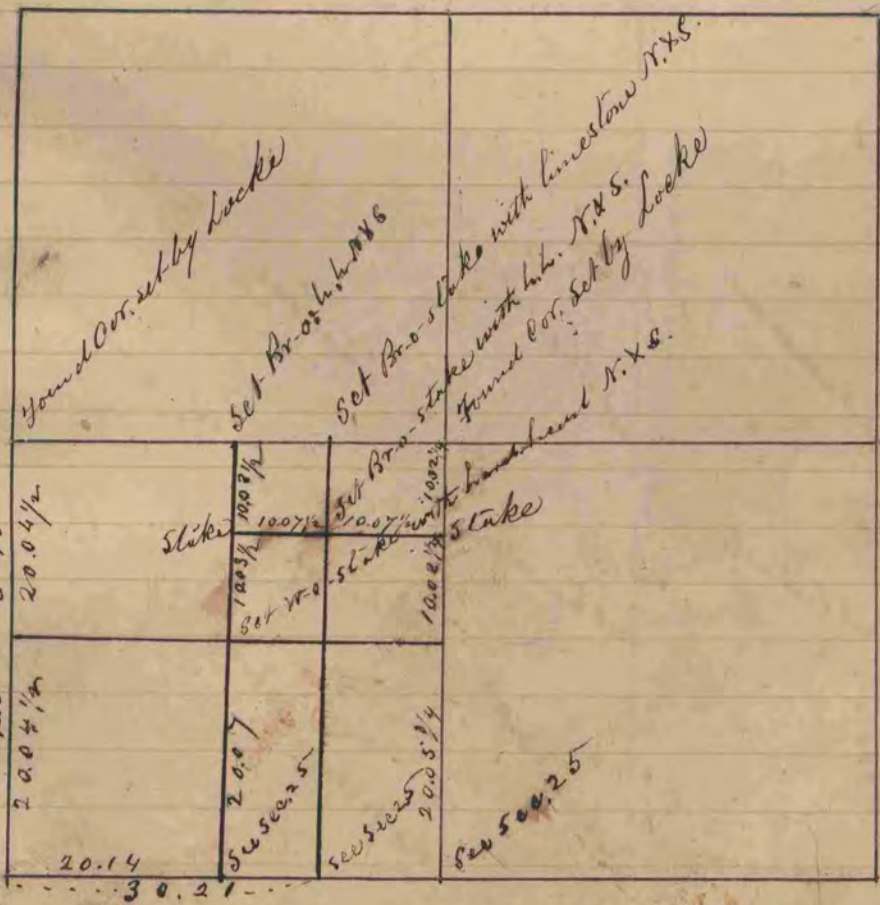 Found Cor. set by Locke
Set Br-o-
Set Br-o-stake with limestone N.&S.
Set Br-o-stake with h.h. N.&S.
Found Cor. Set by Locke
Set W-o-stake with hardhead N.&S.
20.04½
10.02½
10.02¼
Stake
10.07½
10.07½
Stake
10.03½
10.02¼
20.04½
20.07
20.05¼
See Sec. 25
See Sec 25
See Sec. 25
20.14
30.21